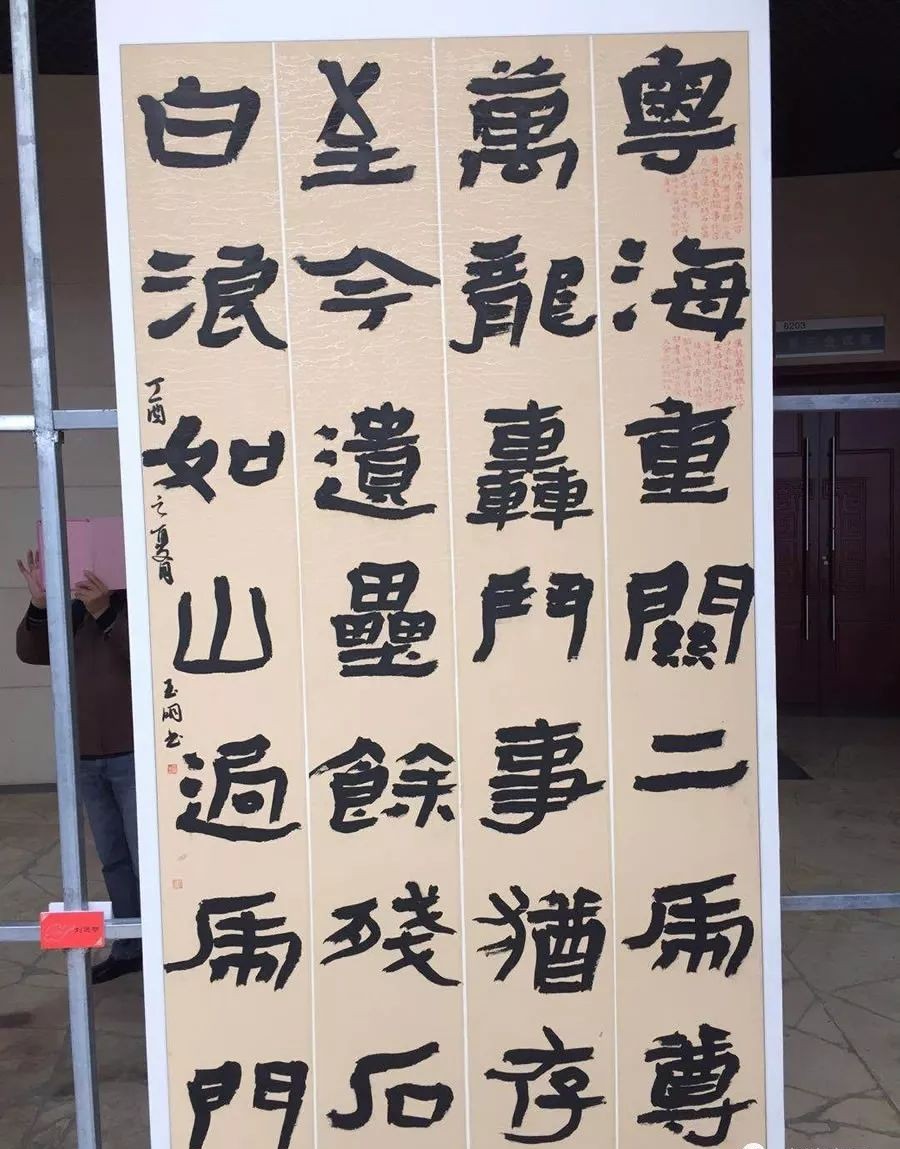 粵海重關二虎尊
萬龍轟鬥事猶存
至今遺壘餘殘石
白浪如山過虎門
丁酉之夏月玉明书